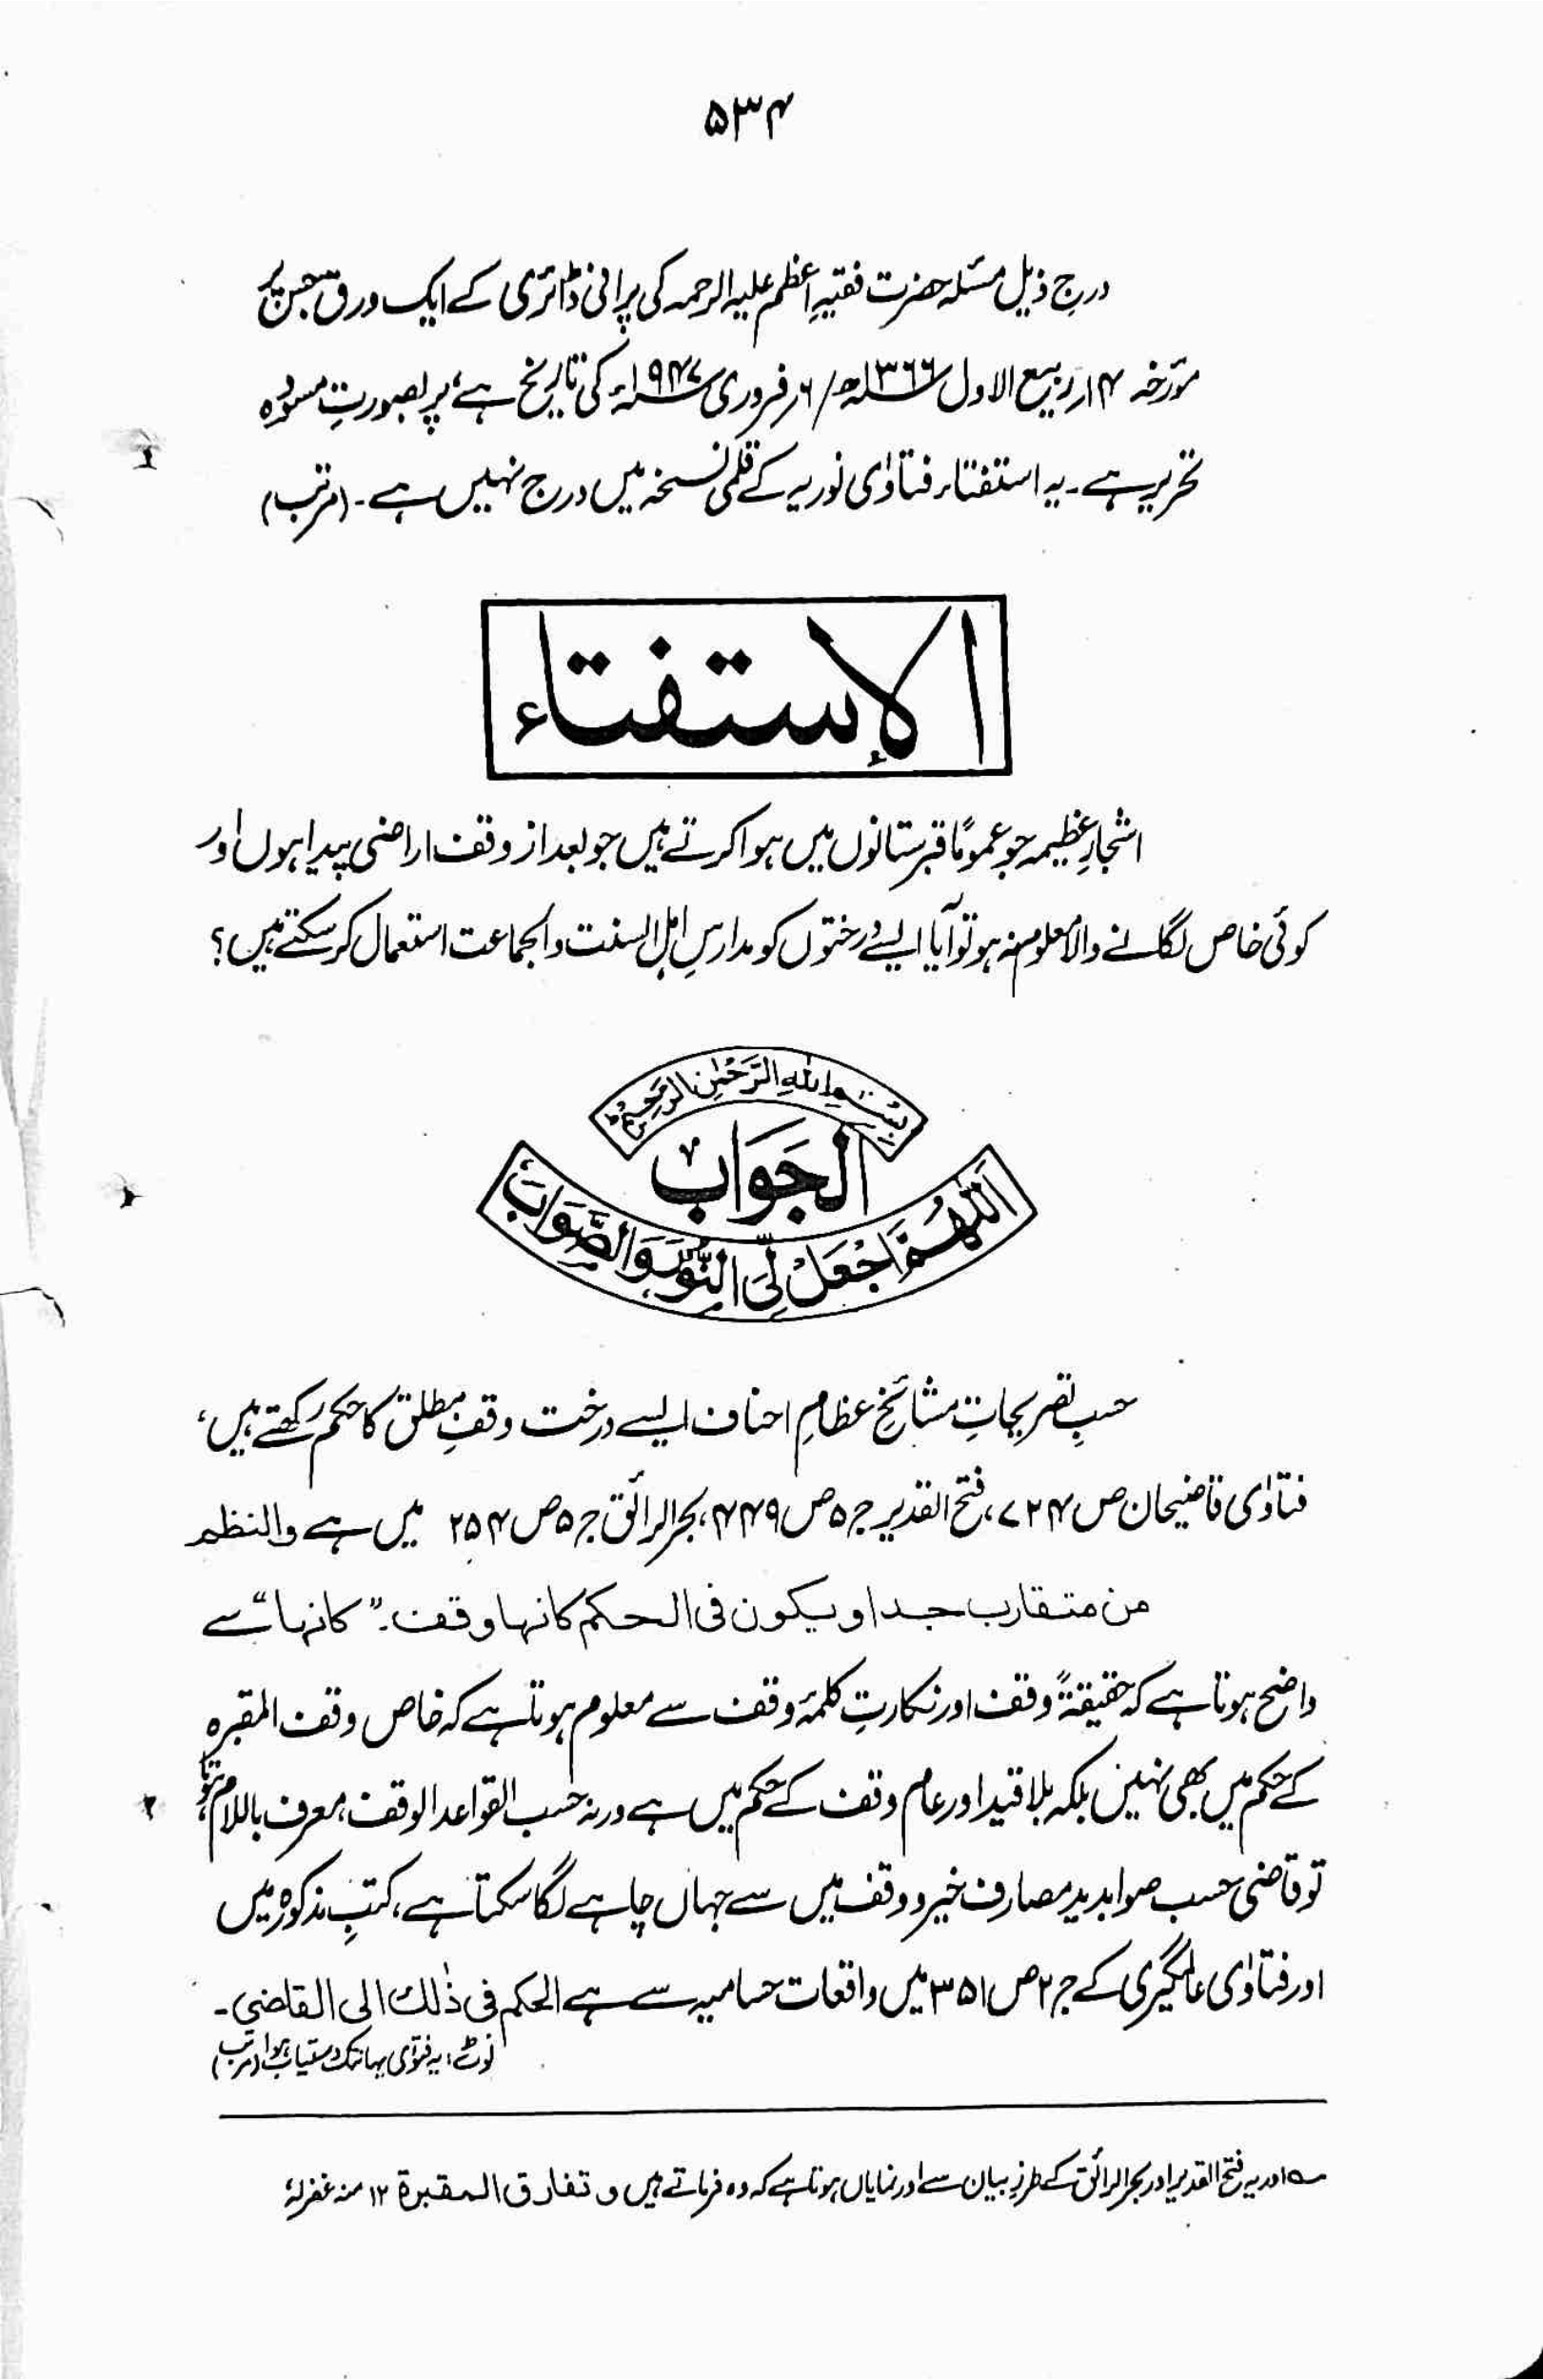 ۵۳۴
درجِ ذیل مسئلہ حضرت فقیہِ اعظم علیہ الرحمہ کی پرانی ڈائری کے ایک ورق جس پر
مؤرخہ ۱۴؍ربیع الاول ۱۳۶۶ھ/۶؍فروری ۱۹۴۷ء کی تاریخ ہے، پر بصورتِ مسودہ
تحریر ہے۔ یہ استفتاء فتاوٰی نوریہ کے قلمی نسخہ میں درج نہیں ہے۔ (مرتب)
الإستفتاء
اشجارِ عظیمہ جو عمومًا قبرستانوں میں ہوا کرتے ہیں جو بعد از وقف اراضی پیدا ہوں اور
کوئی خاص لگانے والا معلوم نہ ہو تو آیا ایسے درختوں کو مدارسِ اہل السنت والجماعت استعمال کر سکتے ہیں؟
بِسْمِ اللهِ الرَّحْمٰنِ الرَّحِيْمِ
الجَوَابُ
اَللّٰهُمَّ اجْعَلْ لِّیَ النُّوْرَ وَالصَّوَابَ
حسبِ تصریحاتِ مشائخِ عظامِ احناف ایسے درخت وقفِ مطلق کا حکم رکھتے ہیں،
فتاوٰی قاضیخان ص ۷۲۴، فتح القدیر ج ۵ ص ۴۴۹، بحر الرائق ج ۵ ص ۲۵۴ میں ہے والنظم
من متقارب جدا ویکون فی الحکم کانہا وقف۔ "کانہا" سے
واضح ہوتا ہے کہ حقیقۃً وقف اور نکارتِ کلمۂ وقف سے معلوم ہوتا ہے کہ خاص وقف المقبرہ
کے حکم میں بھی نہیں بلکہ بلا قید اور عام وقف کے حکم میں ہے ورنہ حسب القواعد الوقف، معرف باللام ہوتا،
تو قاضی حسب صوابدید مصارف خیر و وقف میں سے جہاں چاہے لگا سکتا ہے، کتبِ مذکورہ میں
اور فتاوٰی عالمگیری کے ج ۲ ص ۳۵۱ میں واقعات حسامیہ سے ہے الحکم فی ذٰلک الی القاضی۔
نوٹ: یہ فتوٰی یہانتک دستیاب ہوا (مرتب)
ے اور یہ فتح القدیر اور بحر الرائق کے طرزِ بیان سے اور نمایاں ہوتا ہے کہ وہ فرماتے ہیں و تفارق المقبرة ۱۲ منہ غفرلہٗ